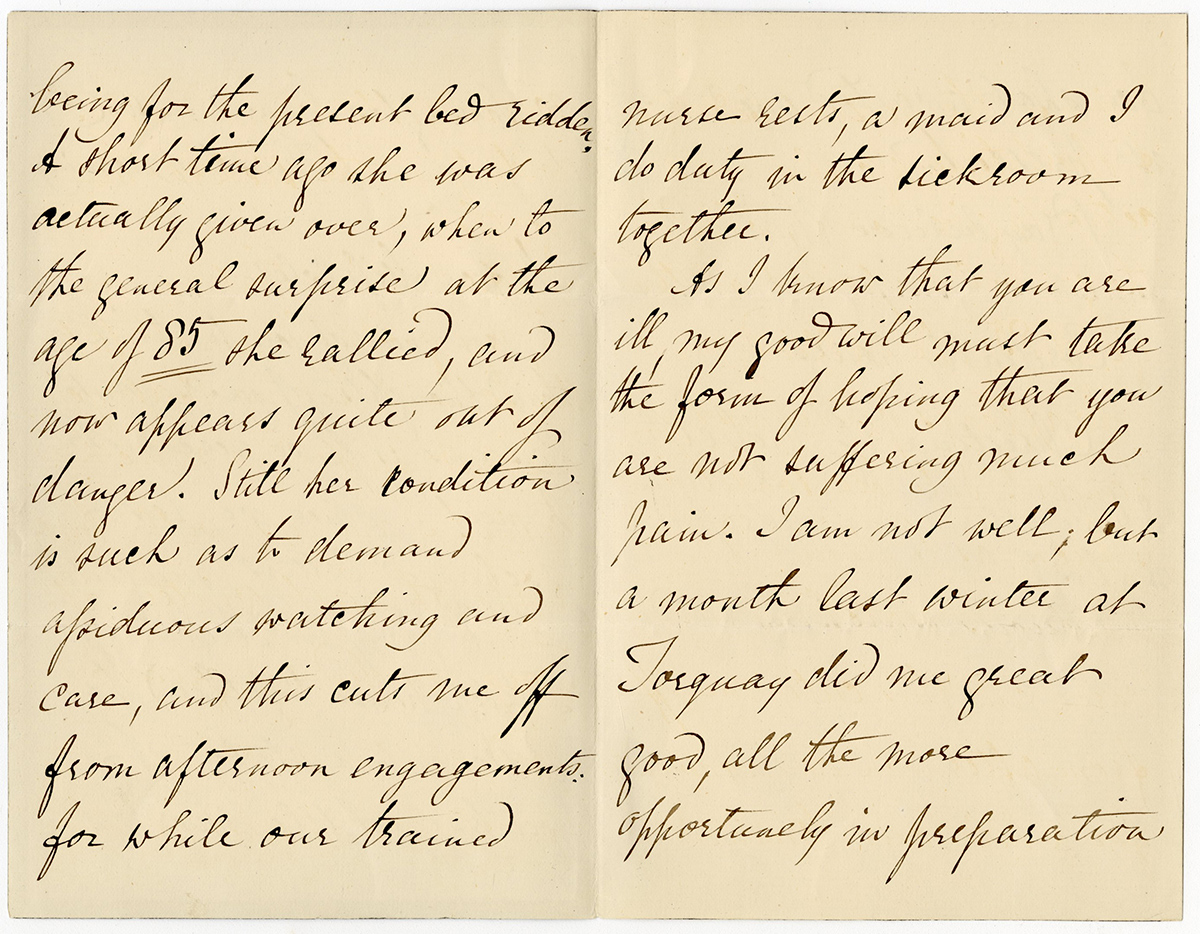 being for the present bed ridden.
A short time ago she was
actually given over, when to
the general surprise at the
age of 85 she rallied, and
now appears quite out of
danger. Still her condition
is such as to demand
assiduous watching and
care, and this cuts me off
from afternoon engagements:
for while our trained
nurse rests, a maid and I
do duty in the sickroom
together.
As I know that you are
ill, my good will must take
the form of hoping that you
are not suffering much
pain. I am not well; but
a month last winter at
Torquay did me great
good, all the more
opportunely in preparation